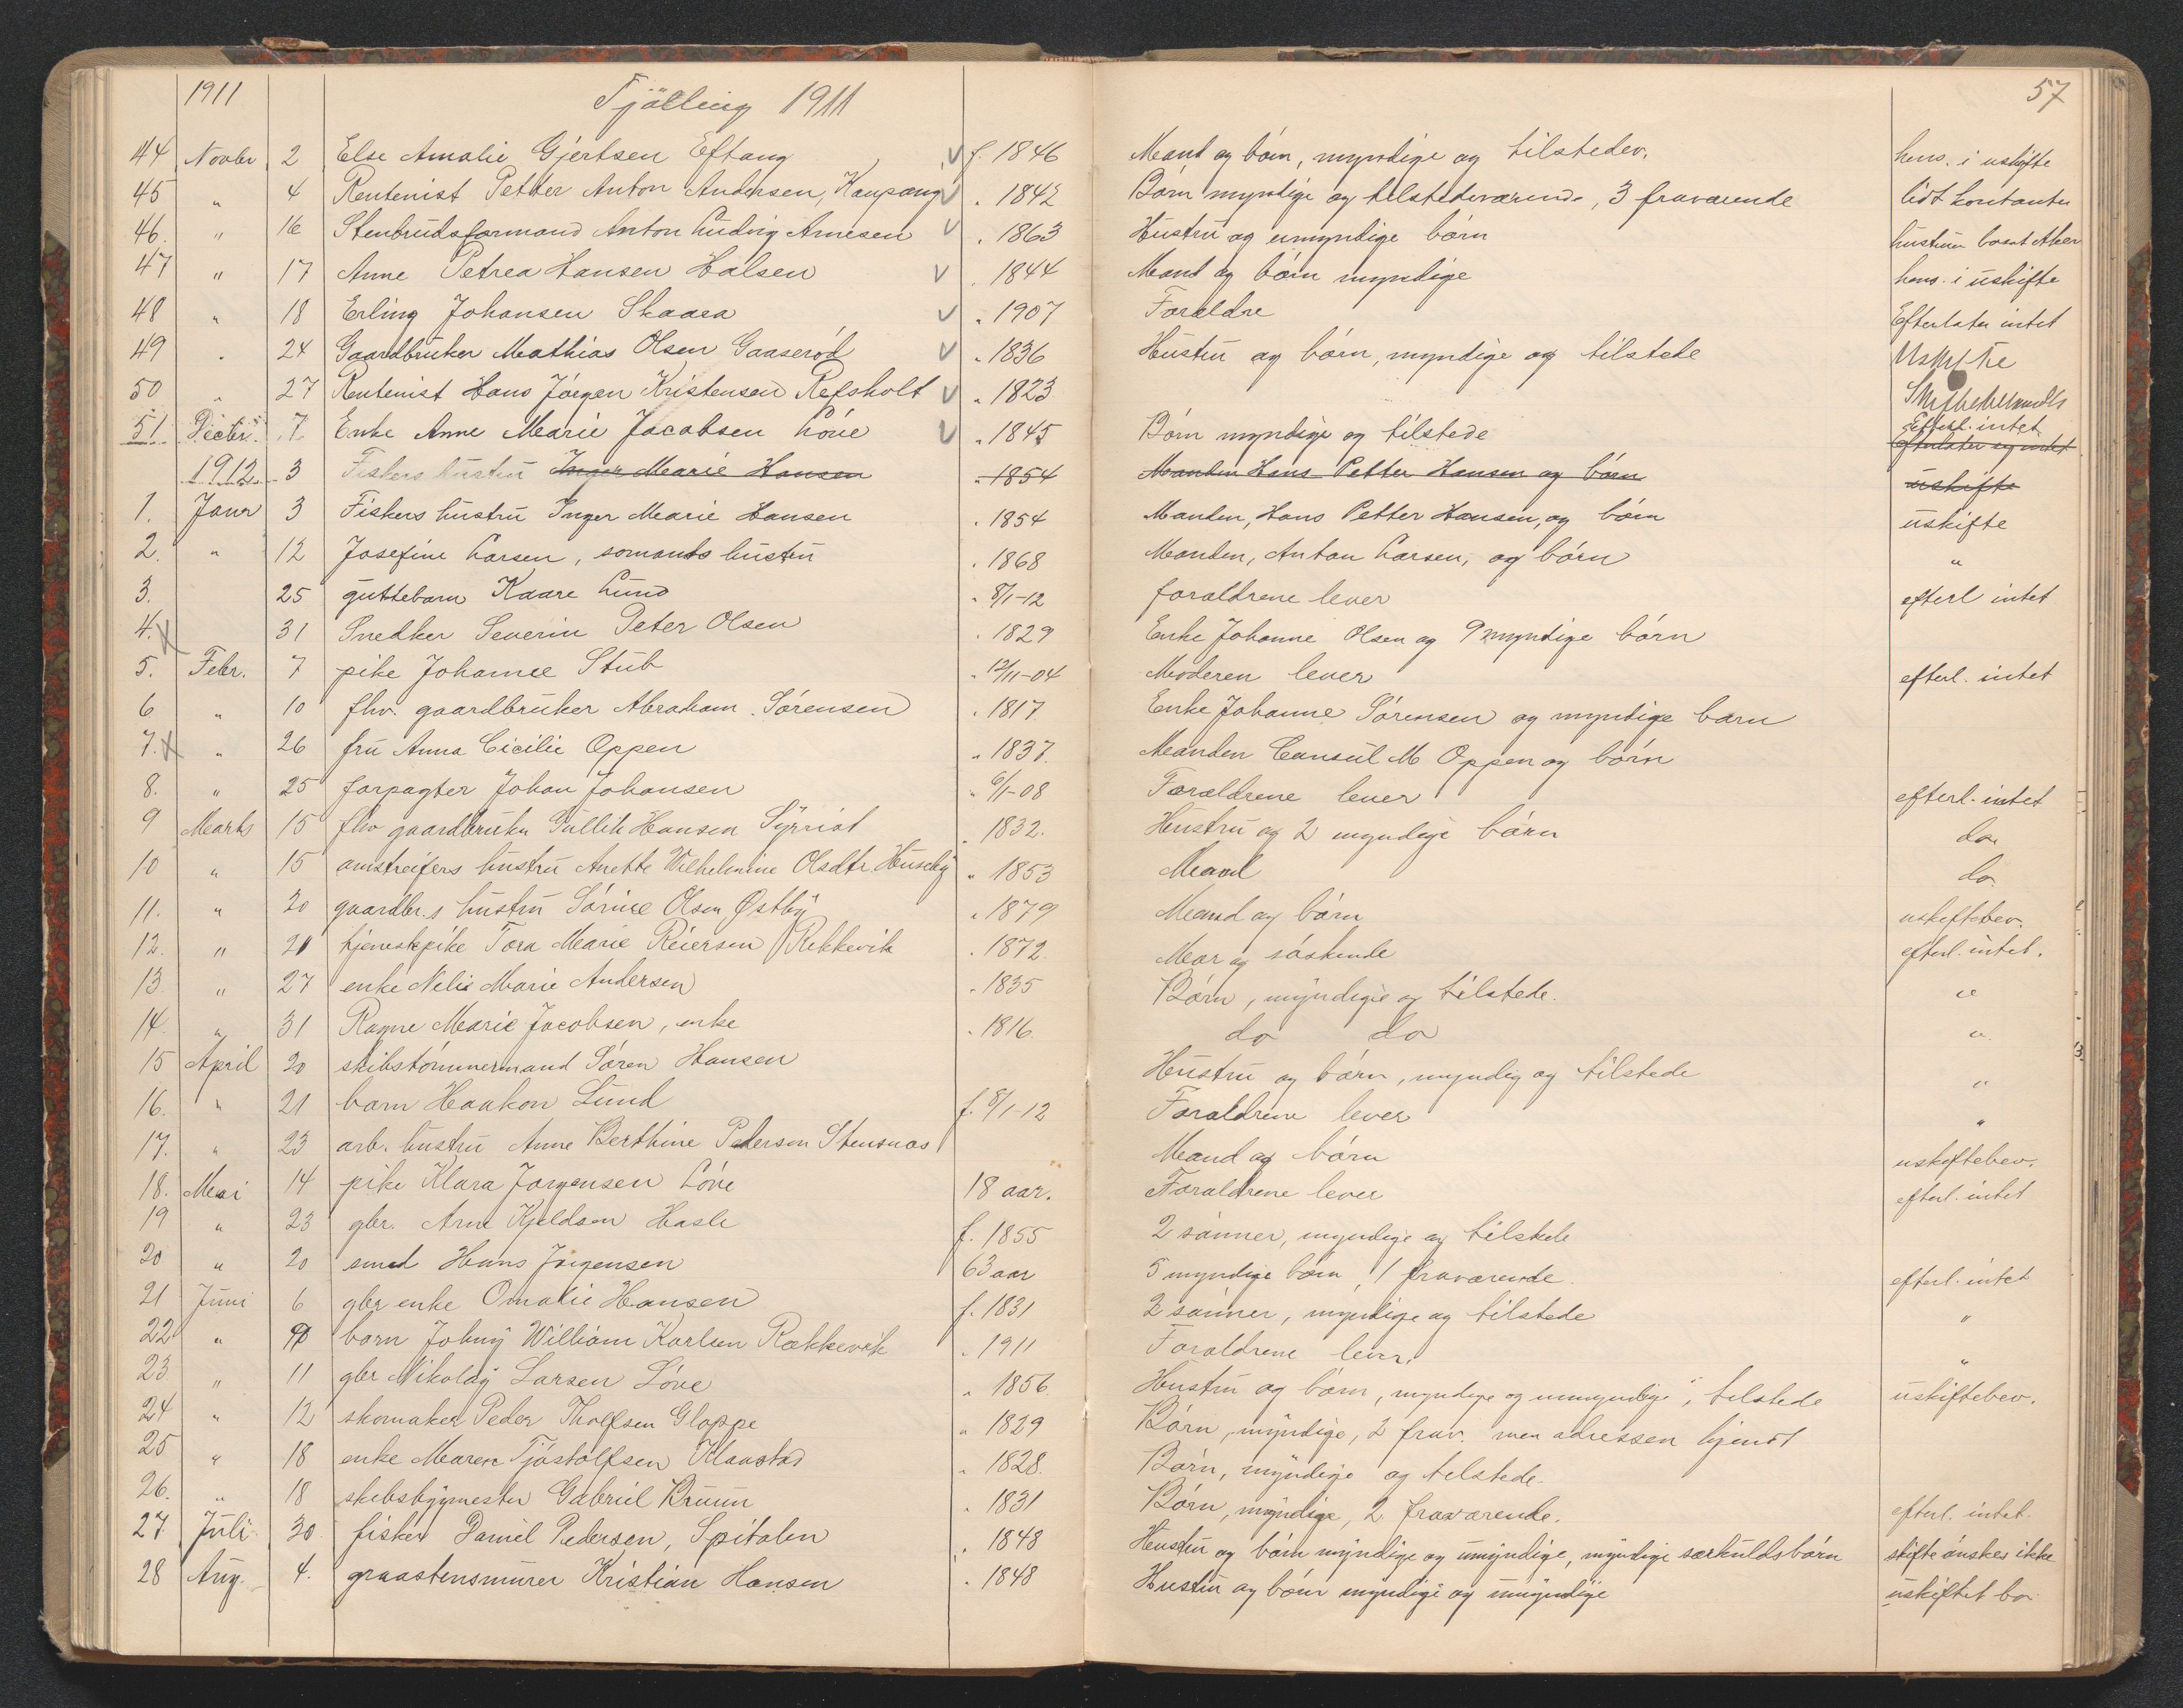 1911 Tjölling 1911 57
44 Novbr 2 Else Amalie Gjertsen Eftang f. 1846 Mand og börn, myndige og tilstedev. hens. i uskifte
45 " 4 Rentenist Petter Anton Andersen, Kaupang " 1842 Börn myndige og tilstedeværende, 3 fraværende lidt kontanter
46. " 16 Stenbrudsformand Anton Ludvig Arnesen " 1863 Hustru og umyndige börn hustruen bosat Aker
47 " 17 Anne Petrea Hansen Halsen " 1844 Mand og börn myndige hens. i uskifte
48 " 18 Erling Johansen Skaara " 1907 Forældre Efterlater intet
49 " 24 Gaardbruker Mathias Olsen Gaaseröd " 1836 Hustru og börn, myndige og tilstede Uskifte
50 " 27 Rentenist Hans Jörgen Kristensen Refsholt " 1823
51. Decbr. 7 Enke Anne Marie Jacobsen Löve " 1845 Börn myndige og tilstede Efterl. intet
1912 3 Fiskers hustru Inger Marie Hansen " 1854 Manden Hans Petter Hansen og börn uskifte
1. Janr 3 Fiskers hustru Inger Marie Hansen " 1854 Manden, Hans Petter Hansen, og börn uskifte
2. " 12 Josefine Larsen, sömands hustru " 1868 Manden, Anton Larsen, og börn "
3. 25 guttebarn Kaare Lund " 8/1-12 forældrene lever efterl intet
4. X 31 Snedker Severin Peter Olsen " 1829 Enke Johanne Olsen og 9 myndige börn
5. Febr. 7 pike Johanne Stub " 12/11-04 Moderen lever efterl. intet
6 " 10 fhv. gaardbruker Abraham Sörensen " 1817 Enke Johanne Sörensen og myndige barn
7. X " 26 fru Anna Cicilie Oppen " 1837. Manden Consul M Oppen og börn
8. " 25 forpagter Johan Johansen " 6/1-08 Forældrene lever efterl. intet
9 Marts 15 fhv gaardbruker Gullik Hansen Syrrist " 1832. Hustru og 2 myndige börn do
10 " 15 omstreifers hustru Anette Wilhelmine Olsdtr. Huseby " 1853 Mand do.
11. " 20 gaardbr.s hustru Sörine Olsen Østby " 1879 Mand og börn uskiftebev.
12. " 21 tjenestepike Tora Marie Reiersen Rekkevik " 1872. Mor og söskende efterl. intet.
13 " 27 enke Nelie Marie Andersen " 1835 Börn, myndige og tilstede. "
14. " 31 Ragne Marie Jacobsen, enke " 1816 do do "
15 April 20 skibstömmermand Sören Hansen Hustru og börn, myndig og tilstede "
16. " 21 barn Haakon Lund f. 8/1-12 Forældrene lever "
17. " 23 arb. hustru Anne Berthine Pedersen Stensnæs Mand og börn uskiftebev.
18. Mai 14 pike Klara Jörgensen Löve 18 aar. Forældrene lever efterl. intet
19 " 23 gbr. Arne Kjeldsen Hasle f. 1855 2 sönner, myndige og tilstede
20 " 20 smed Hans Jörgensen 63 aar 5 myndige börn, 1 fraværende. efterl. intet
21 Juni 6 gbr enke Omalie Hansen f. 1831 2 sönner, myndige og tilstede "
22 " barn Johny William Karlsen Rækkevik " 1911 Forældrene lever. "
23 " 11 gbr Nikolay Larsen Löve " 1856. Hustru og börn, myndige og umyndige, tilstede uskiftebev.
24 " 12 skomaker Peder Tholfsen Gloppe " 1829 Börn, myndige, 2 frav. men adressen kjendt
25 " 18 enke Maren Tjöstolfsen Klaastad " 1828. Börn, myndige og tilstede.
26. " 18 skibsbygmester Gabriel Bruun " 1831 Börn, myndige, 2 fraværende. efterl. intet.
27 Juli 30 fisker Daniel Pedersen, Spitalen " 1848 Hustru og börn myndige og umyndige, myndige særkuldsbörn skifte önskes ikke
28 Aug. 4. graastensmurer Kristian Hansen " 1848 Hustru og börn myndige og umyndige uskiftet bo